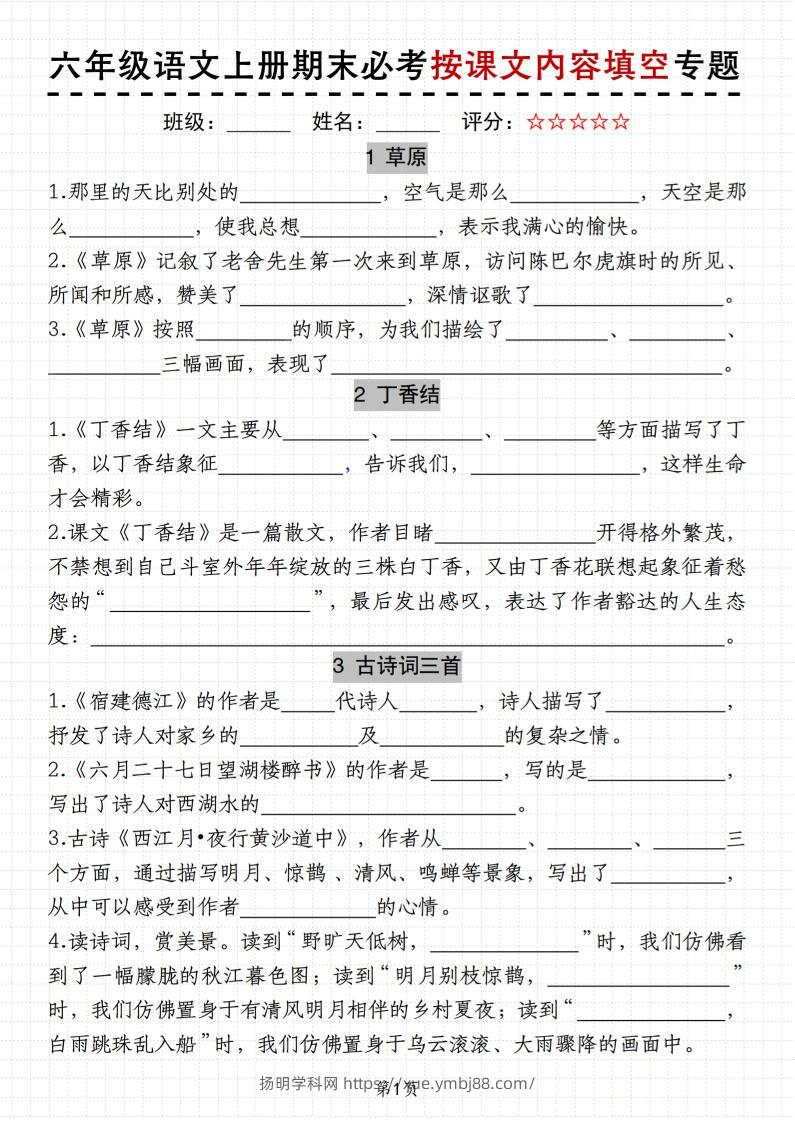 六年级语文上册期末必考按课文内容填空专题
班级：______ 姓名：______ 评分：☆☆☆☆☆
1 草原
1.那里的天比别处的____________，空气是那么____________，天空是那
么____________，使我总想____________，表示我满心的愉快。
2.《草原》记叙了老舍先生第一次来到草原，访问陈巴尔虎旗时的所见、
所闻和所感，赞美了______________，深情讴歌了________________。
3.《草原》按照________的顺序，为我们描绘了________、________、
__________三幅画面，表现了________________________________。
2 丁香结
1.《丁香结》一文主要从________、________、________等方面描写了丁
香，以丁香结象征__________，告诉我们，______________，这样生命
才会精彩。
2.课文《丁香结》是一篇散文，作者目睹______________开得格外繁茂，
不禁想到自己斗室外年年绽放的三株白丁香，又由丁香花联想起象征着愁
怨的“__________________”，最后发出感叹，表达了作者豁达的人生态
度：____________________________________________________。
3 古诗词三首
1.《宿建德江》的作者是_____代诗人_______，诗人描写了__________，
抒发了诗人对家乡的__________及__________的复杂之情。
2.《六月二十七日望湖楼醉书》的作者是______，写的是____________，
写出了诗人对西湖水的______________________。
3.古诗《西江月•夜行黄沙道中》，作者从_______、_______、______三
个方面，通过描写明月、惊鹊 、清风、鸣蝉等景象，写出了__________，
从中可以感受到作者____________的心情。
4.读诗词，赏美景。读到“野旷天低树，_____________”时，我们仿佛看
到了一幅朦胧的秋江暮色图；读到“明月别枝惊鹊，________________”
时，我们仿佛置身于有清风明月相伴的乡村夏夜；读到“_____________，
白雨跳珠乱入船”时，我们仿佛置身于乌云滚滚、大雨骤降的画面中。
扬明学科网 https://xue.ymbj88.com/
第1页